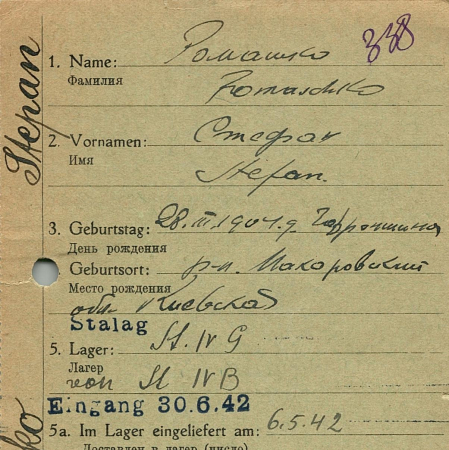 338
1. Name: Ромашко
Фамилия Romaschko
2. Vornamen: Стефан
Имя Stefan.
3. Geburtstag: 28.III.1904.г
День рождения
Geburtsort: р-н. Макаровский
Место рождения
обл. Киевской
Stalag
5. Lager: St. IV G
Лагер
von St IV B
Eingang 30.6.42
5a. Im Lager eingeliefert am: 6.5.42
Доставлен в лагер (число)
Stepan
ko